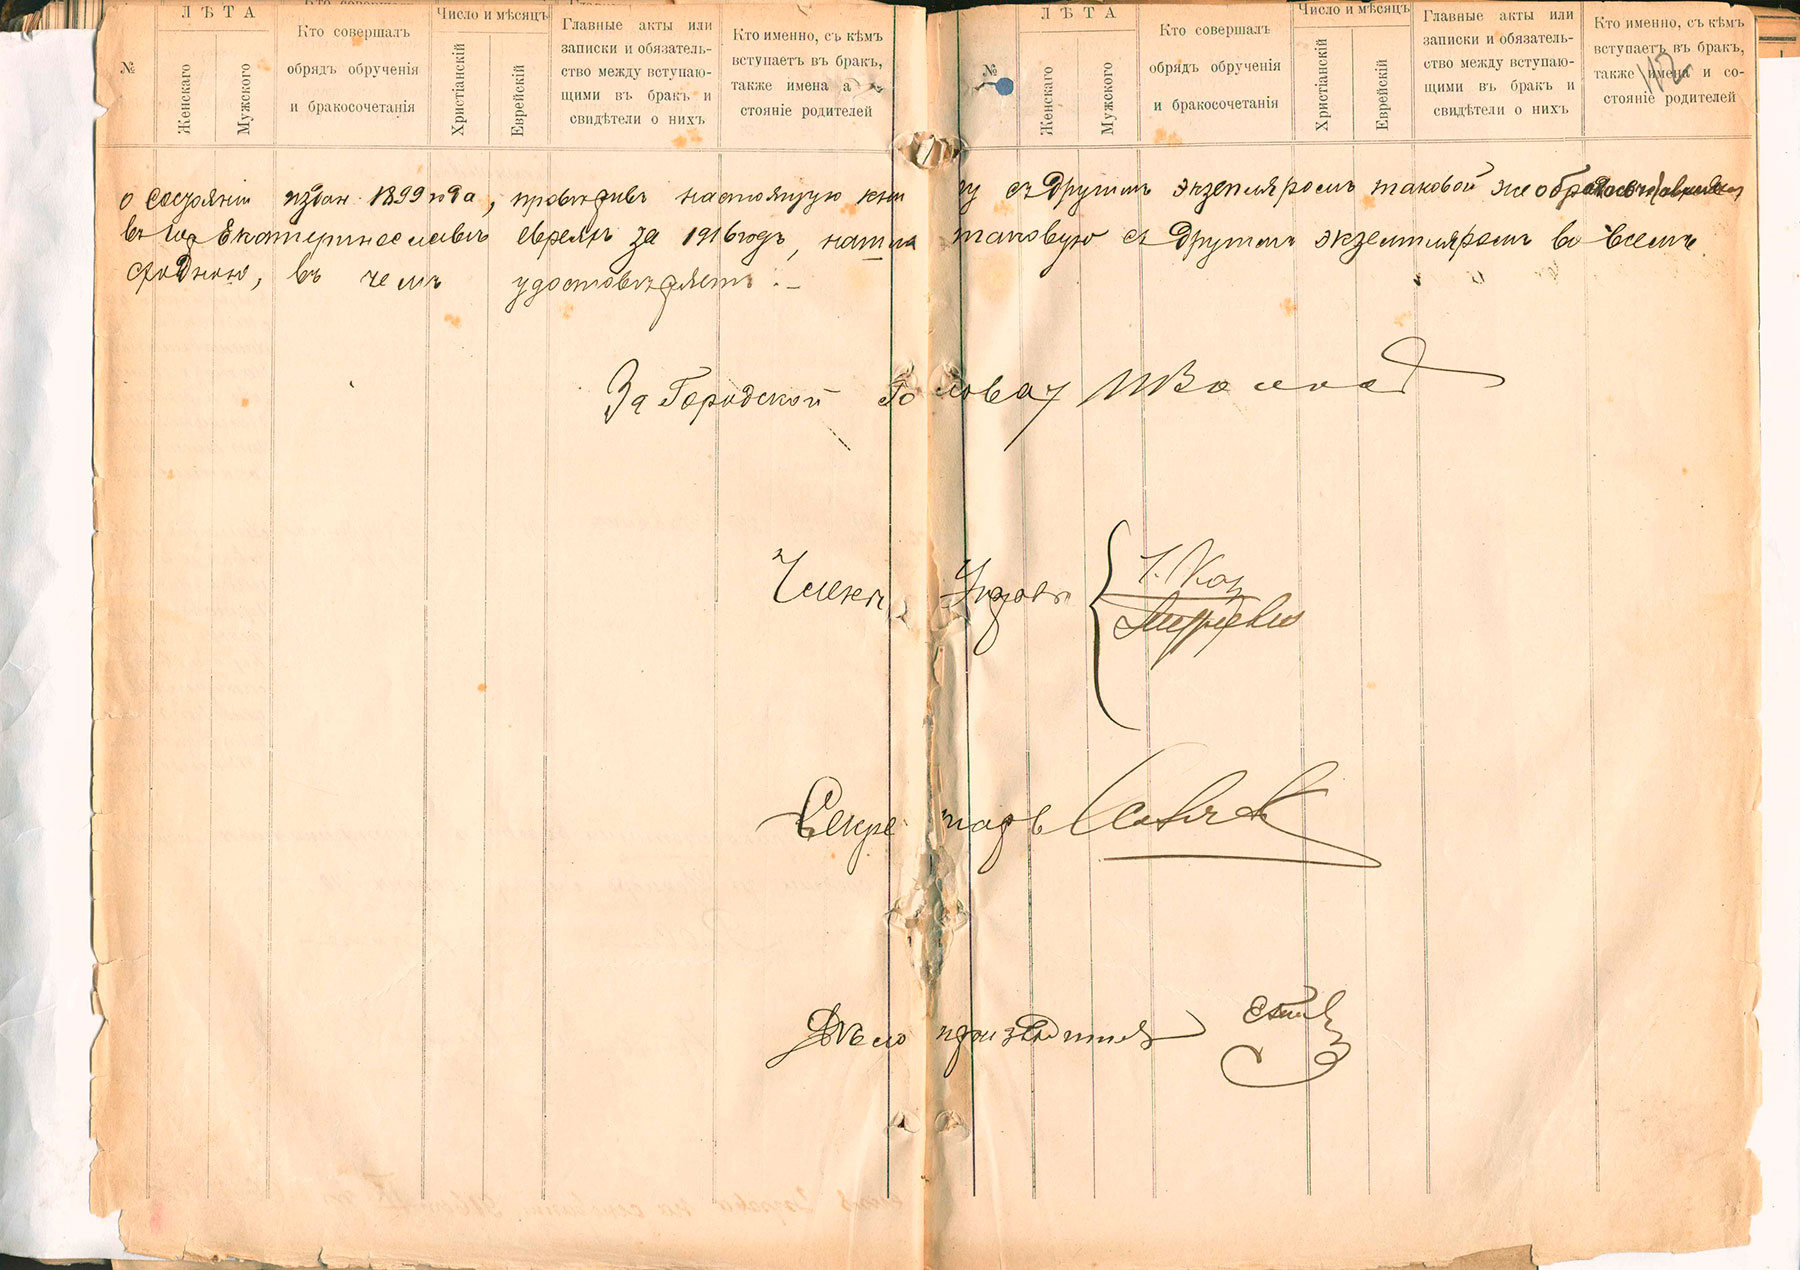 №
ЛѢТА
Женскаго
Мужского
Кто совершалъ
обрядъ обрученія
и бракосочетанія
Число и мѣсяцъ
Христіанскій
Еврейскій
Главные акты или
записки и обязатель-
ство между вступаю-
щими въ бракъ и
свидѣтели о нихъ
Кто именно, съ кѣмъ
вступаетъ въ бракъ,
также имена а
стояніе родителей
№
ЛѢТА
Женскаго
Мужского
Кто совершалъ
обрядъ обрученія
и бракосочетанія
Число и мѣсяцъ
Христіанскій
Еврейскій
Главные акты или
записки и обязатель-
ство между вступаю-
щими въ бракъ и
свидѣтели о нихъ
Кто именно, съ кѣмъ
вступаетъ въ бракъ,
также имена и со-
стояніе родителей
112
о издан 1899 года, провѣривъ настоящую книгу съ другимъ экземпляромъ таковой же о
въ гор Екатеринославѣ евреямъ за 1916 годъ, нашла таковую съ другимъ экземпляромъ во всемъ
сходною, въ чемъ удостовѣряетъ.—
За Городской Голова
Члены Управы
Секретарь
Дѣлопроизводитель